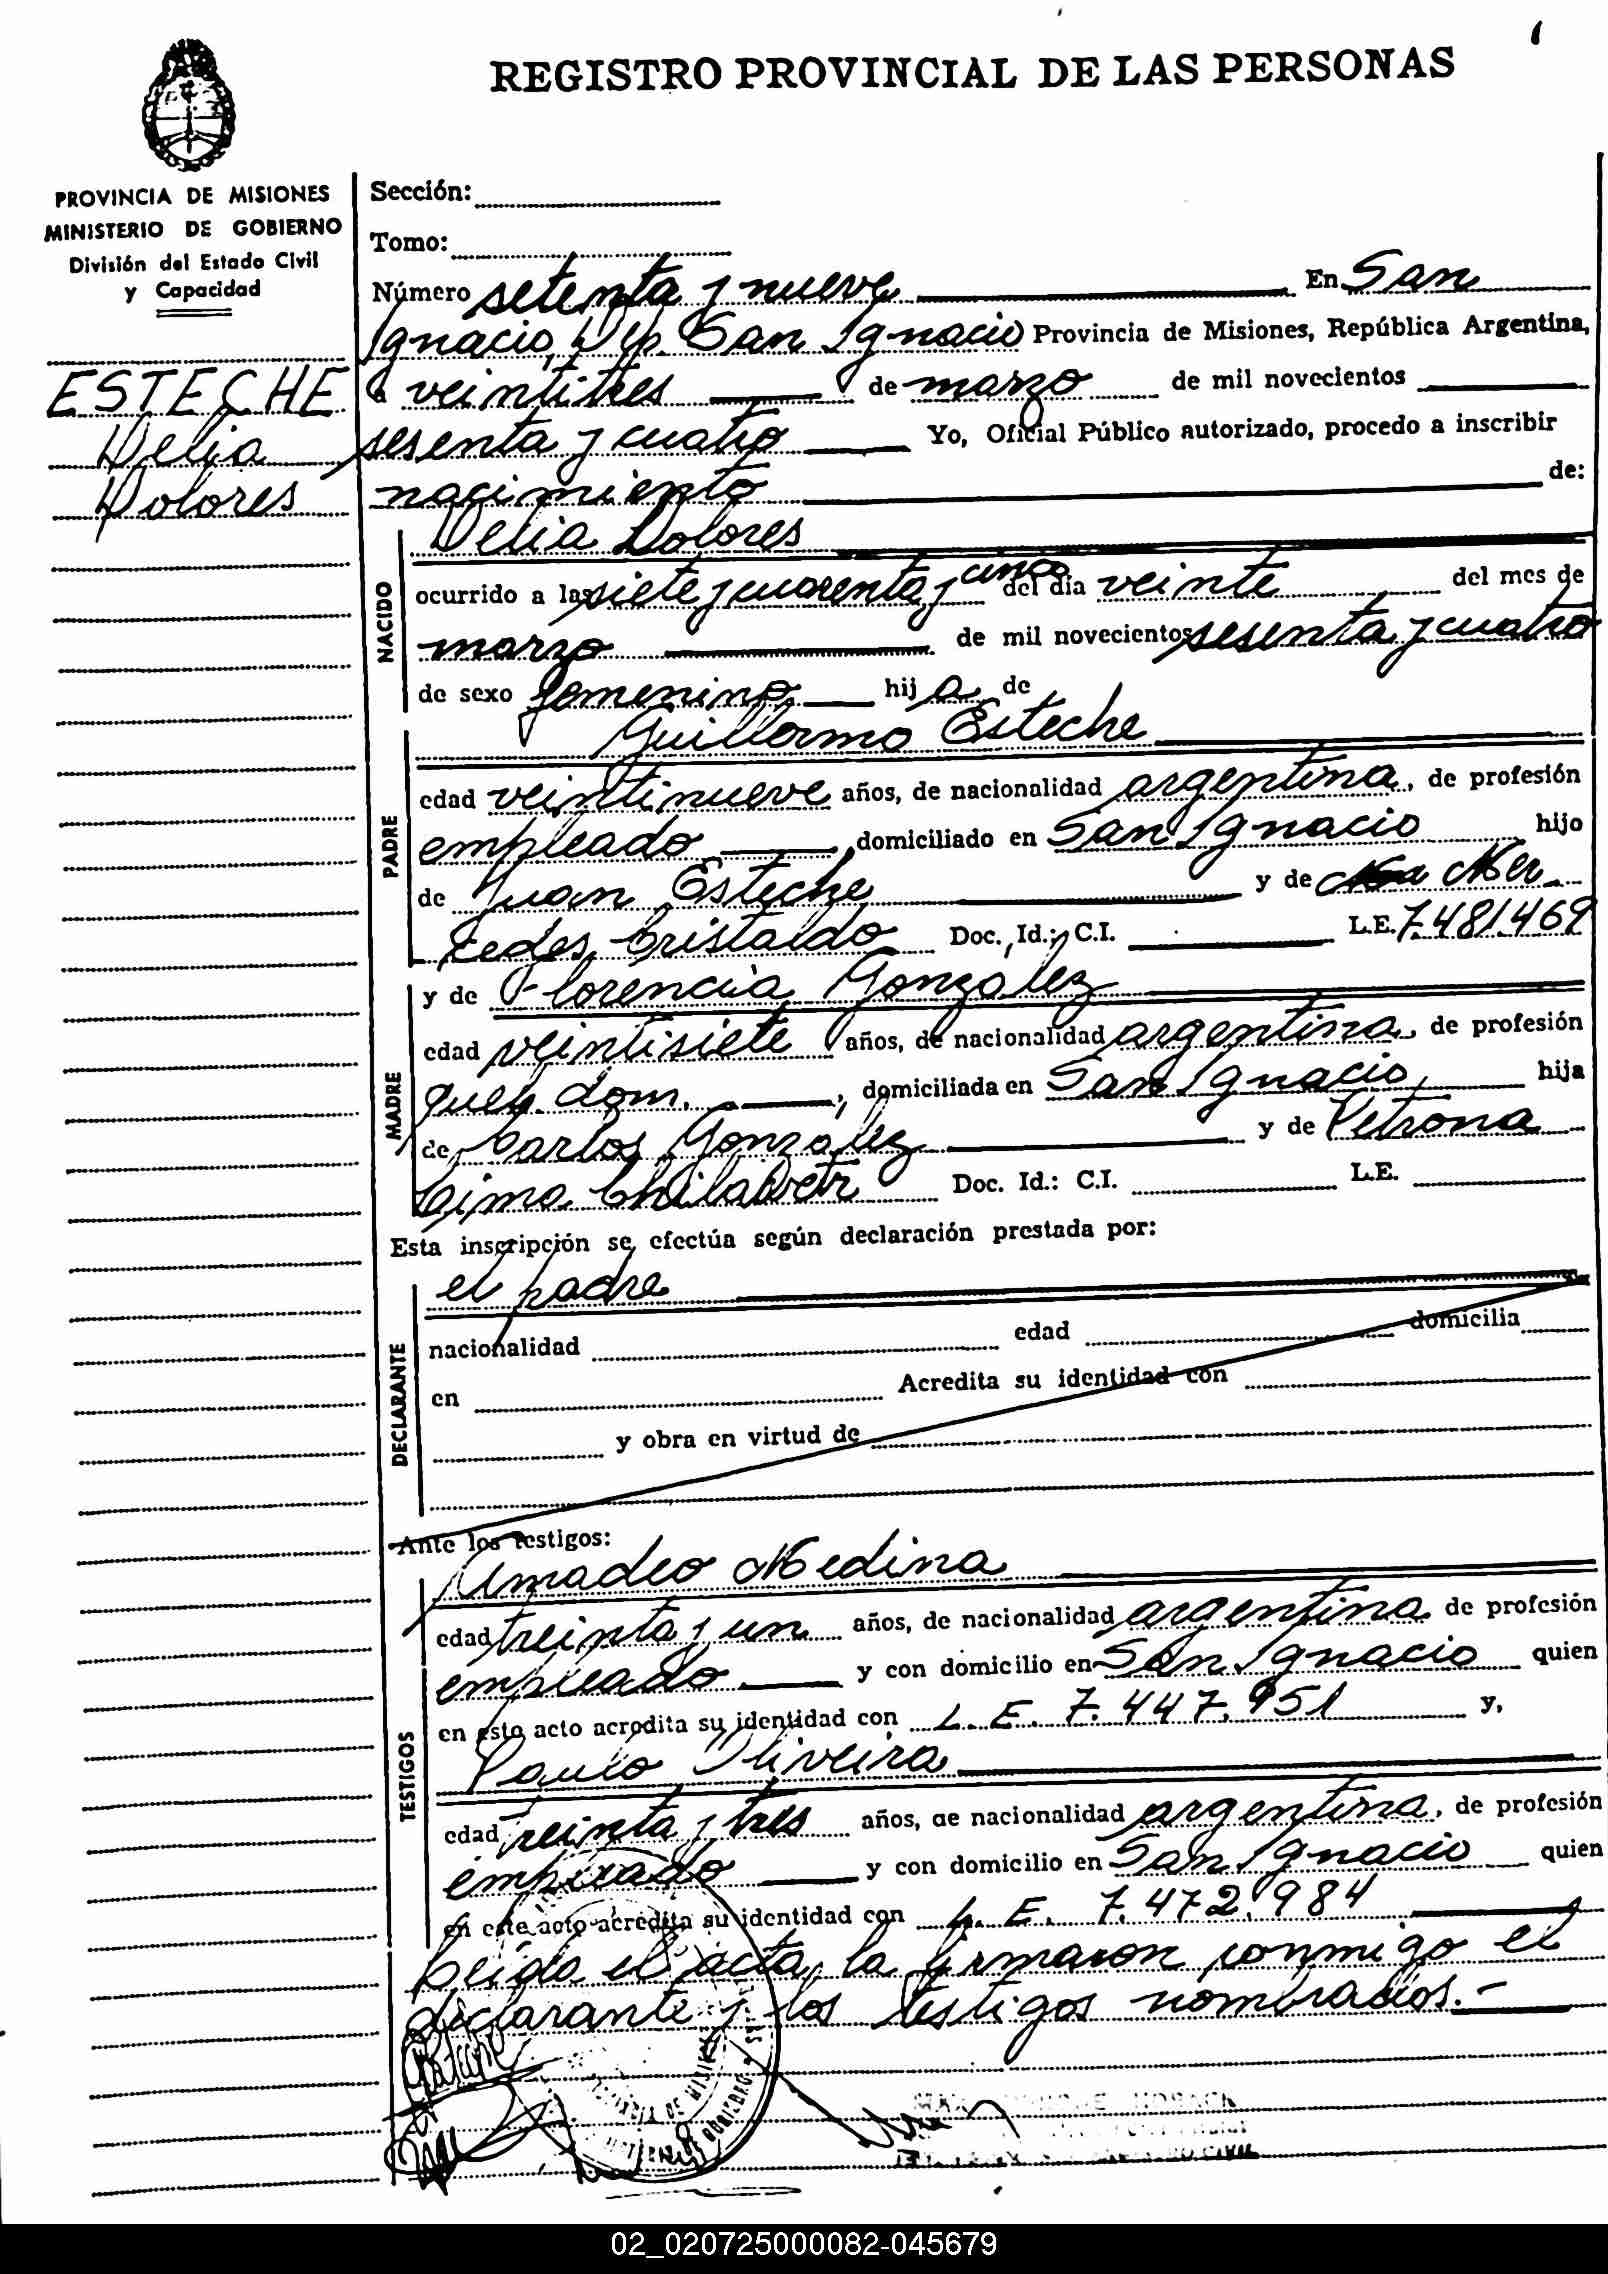 REGISTRO PROVINCIAL DE LAS PERSONAS
PROVINCIA DE MISIONES
MINISTERIO DE GOBIERNO
División del Estado Civil
y Capacidad
ESTECHE
Delia
Dolores
Sección:
Tomo:
Número setenta y nueve En San
Ignacio, Dep. San Ignacio Provincia de Misiones, República Argentina,
a veintitres de marzo de mil novecientos
sesenta y cuatro Yo, Oficial Público autorizado, procedo a inscribir
nacimiento de:
NACIDO
Delia Dolores
ocurrido a las siete y cuarenta y cinco del día veinte del mes de
marzo de mil novecientos sesenta y cuatro
de sexo femenino hija de
PADRE
Guillermo Esteche
edad veintinueve años, de nacionalidad argentina, de profesión
empleado, domiciliado en San Ignacio hijo
de Juan Esteche y de Mer
cedes Cristaldo Doc. Id.: C.I. L.E. 7.481.469
MADRE
y de Florencia González
edad veintisiete años, de nacionalidad argentina, de profesión
queh. dom., domiciliada en San Ignacio, hija
de Carlos González y de Petrona
Doc. Id.: C.I. L.E.
Esta inscripción se efectúa según declaración prestada por:
DECLARANTE
el padre
nacionalidad edad domicilia
en Acredita su identidad con
y obra en virtud de
Ante los testigos:
TESTIGOS
Amadeo Medina
edad treinta y un años, de nacionalidad argentina de profesión
empleado y con domicilio en San Ignacio quien
en esto acto acredita su identidad con L.E. 7.447.951 y,
Paulo Oliveira
edad treinta y tres años, de nacionalidad argentina, de profesión
empleado y con domicilio en San Ignacio quien
en este acto acredita su identidad con L.E. 7.472.984
Leída el acta, la firmaron conmigo el
declarante y los testigos nombrados.-
02_020725000082-045679